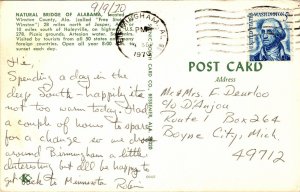 9/9/70
NATURAL BRIDGE OF ALABAMA, located
Winston County, Ala. (called "Free
Winston") 28 miles north of Jasper,
10 miles south of Haleyville, on highway
278. Picnic grounds. Artesian water.
Visited by tourists from all 50 states
foreign countries. Open all year 8:00
sunset
BIRMINGHAM, AL
PM
1970
WASHINGTON
5¢
Hi,
Spending a day in the
deep South. Happily its
not too warm today. Had
a couple of hours to spare
for a change so we drove
around Birmingham a little.
Interesting but I'll be happy to
get back to Minnesota Robin
POST CARD
Address
Mr & Mrs. F Deurloo
c/o D'Anjou
Route 1 Box 264
Boyne City, Mich.
49712
K